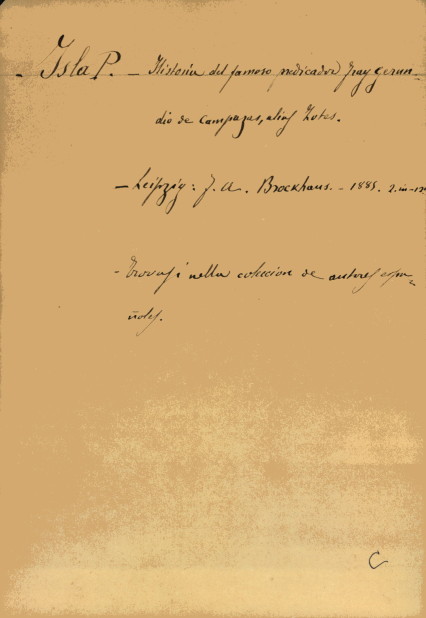 - Isla P. - Historia del famoso predicador Fray Gerun-
dio de Campazas, alias Zotes.
- Leipzig: F. A. Brockhaus. - 1885. 2. in-12
- Trovasi nella coleccion de autores espa-
ñoles.
C